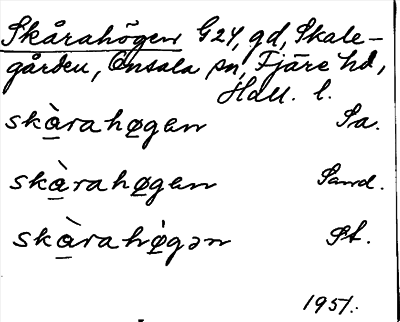 Skårahögen G24, gd, Skale-
gården, Onsala sn, Fjäre hd,
Hall. l.
skàrahøgen Sa.
skàrahøgen Sand.
skàrahø̀gən St.
1951.